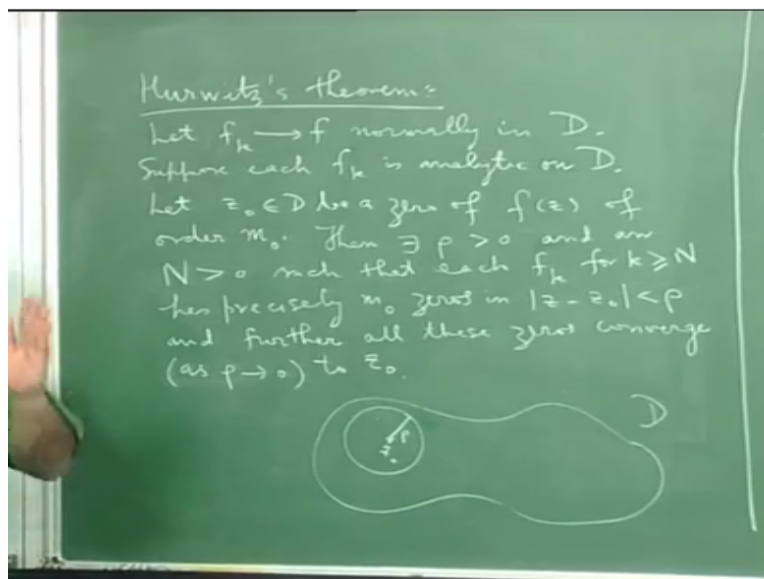 Hurwitz's theorem:
Let f_k → f normally in D.
Suppose each f_k is analytic on D.
Let z_0 ∈ D be a zero of f(z) of
order m_0. Then ∃ ρ > 0 and an
N > 0 such that each f_k for k ≥ N
has precisely m_0 zeros in |z - z_0| < ρ
and further all these zeros converge
(as ρ → 0) to z_0.
D
ρ
z_0